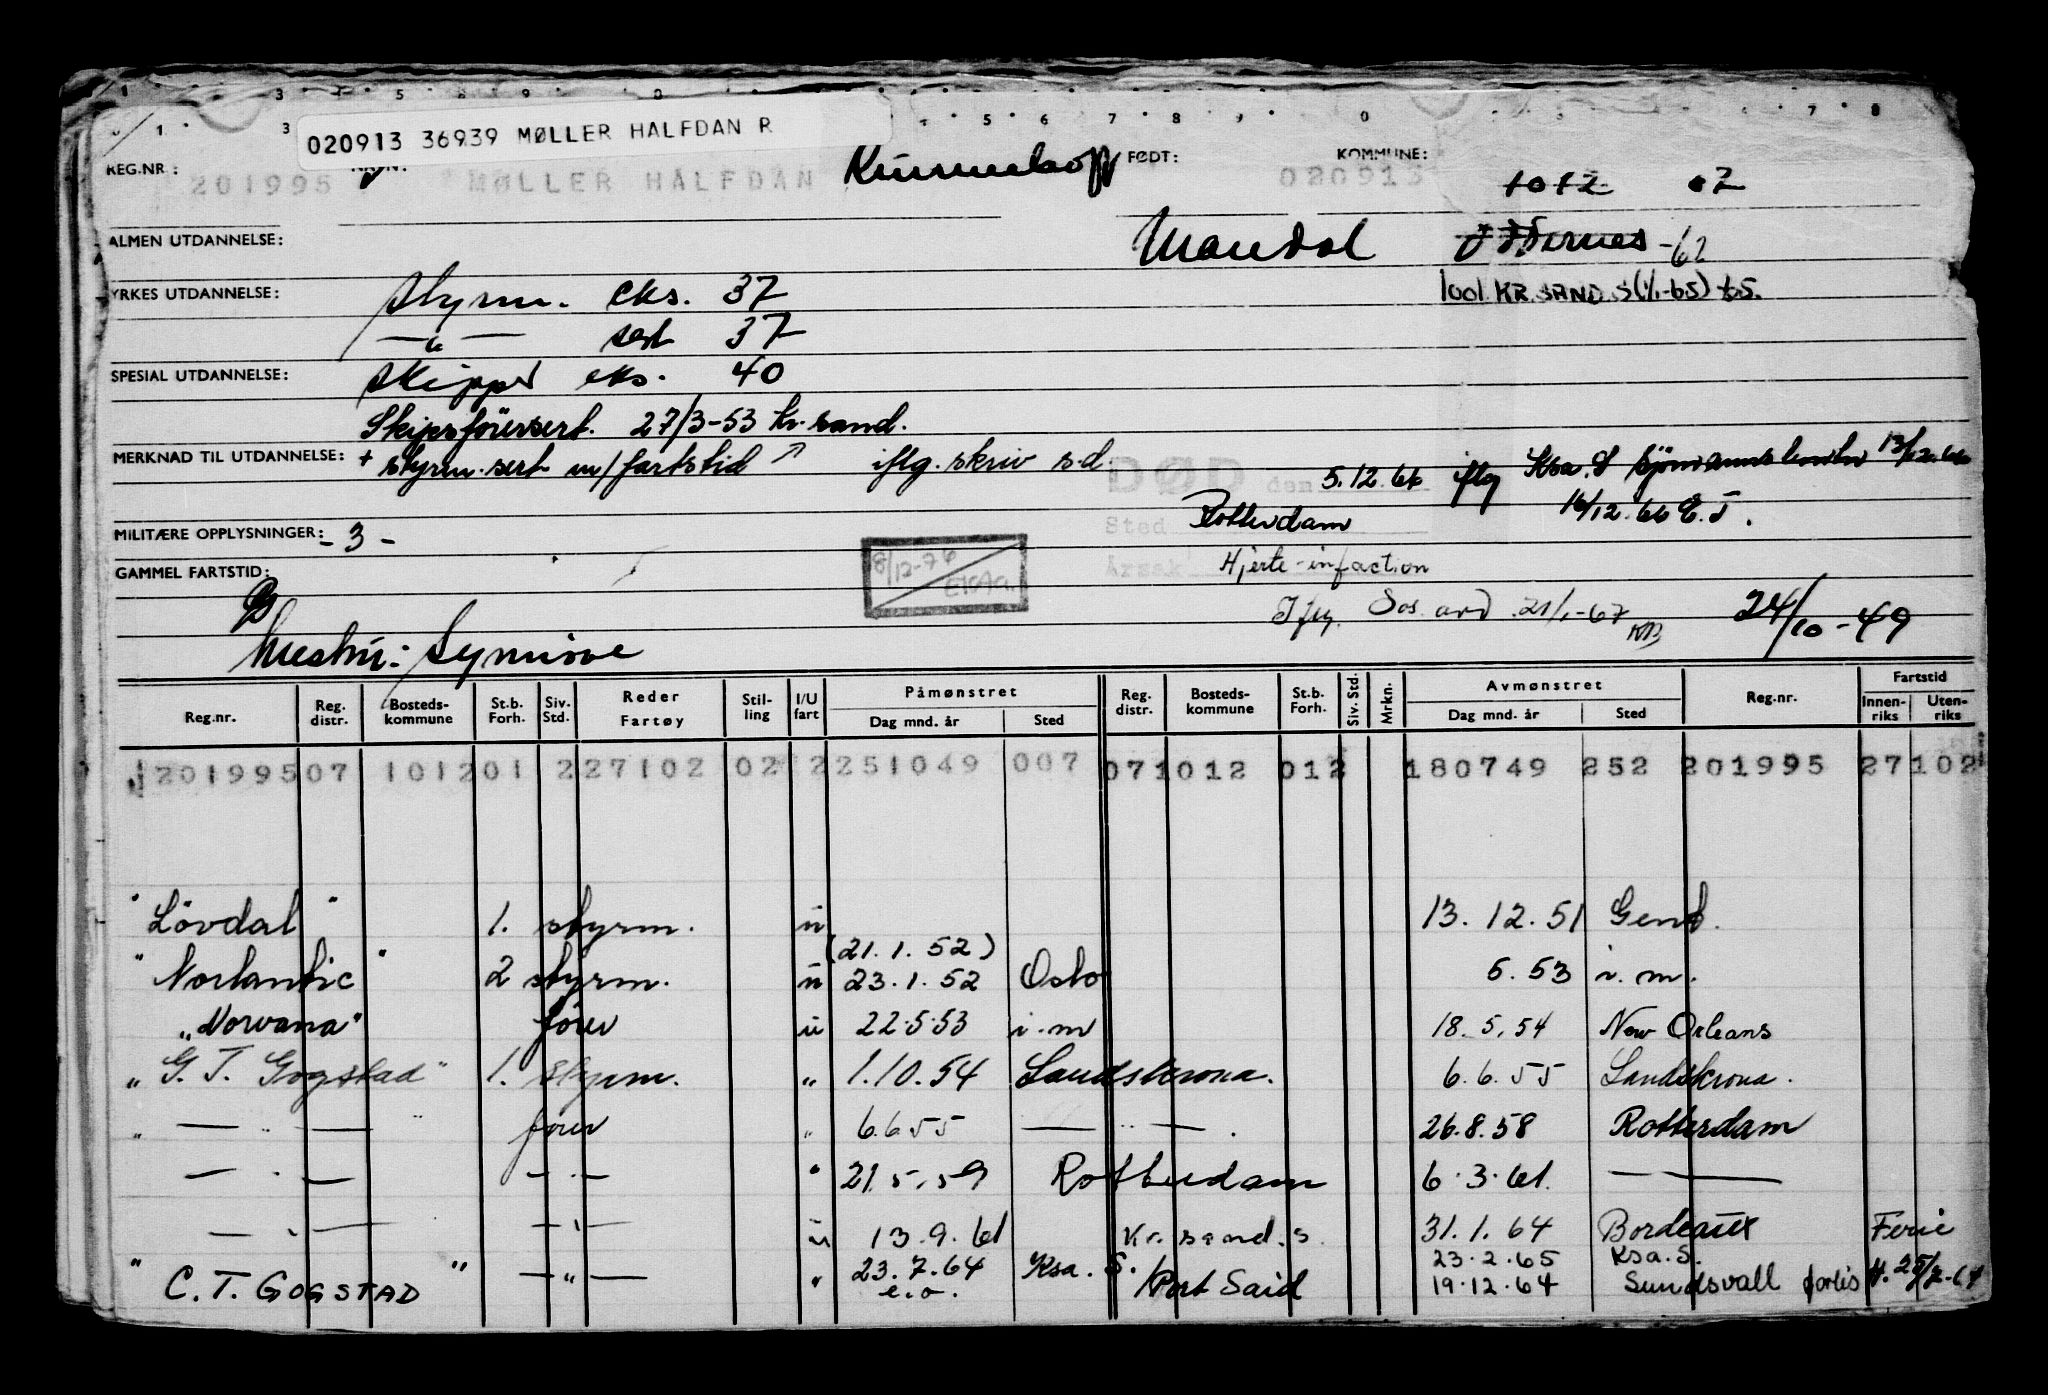 020913 36939 MØLLER HALFDAN R
REG.NR: 201995 MØLLER HALFDAN FØDT: 020913 KOMMUNE: 1012 07
ALMEN UTDANNELSE: Mandal -62
YRKES UTDANNELSE: styrm. eks. 37 1001 KR.SAND.S (1/1-65) 65.
—"— sert 37
SPESIAL UTDANNELSE: skipper eks. 40
Skipsförersert. 27/3-53 Kr.sand.
MERKNAD TIL UTDANNELSE: + styrm.sert m/fartstid iflg. skriv s.d.
DØD den 5.12.66 iflg Ksa. S sjömannskontor 13/12.66
MILITÆRE OPPLYSNINGER: -3- Sted Rotterdam 16/12.66 E.J.
GAMMEL FARTSTID: 8/12-76 Årsak Hjerte-infaction
Iflg. Sos. avd. 21/1-67 KB 24/10-49
hustru: Synnöve
Reg.nr. Reg. distr. Bosteds-kommune St.b. Forh. Siv. Std. Reder Fartøy Stil-ling I/U fart Påmønstret Dag mnd. år Sted Reg. distr. Bosteds-kommune St.b. Forh. Siv. Std. Mrkn. Avmønstret Dag mnd. år Sted Reg.nr. Fartstid Innen-riks Uten-riks
201995 07 1012 01 2 27102 02 2 251049 007 07 1012 012 180749 252 201995 27102
"Lövdal" 1. styrm. u 13.12.51 Gent.
(21.1.52)
"Norlantic" 2 styrm. u 23.1.52 Oslo 5.53 i.m.
"Norvana" förer u 22.5.53 i.m 18.5.54 New Orleans
"G.T. Gogstad" 1. styrm. " 1.10.54 Landskrona. 6.6.55 Landskrona.
" — " — " förer " 6.6.55 — " — . 26.8.58 Rotterdam
— " — — " — " 21.5.59 Rotterdam 6.3.61. ———
— " — — " — u 13.9.61 Kr.sand.s. 31.1.64 Bordeaux Ferie
23.2.65 Ksa.S.
"C.T. GOGSTAD" — " — " 23.7.64 Ksa. S./Port Said 19.12.64 Sundsvall
e.o.